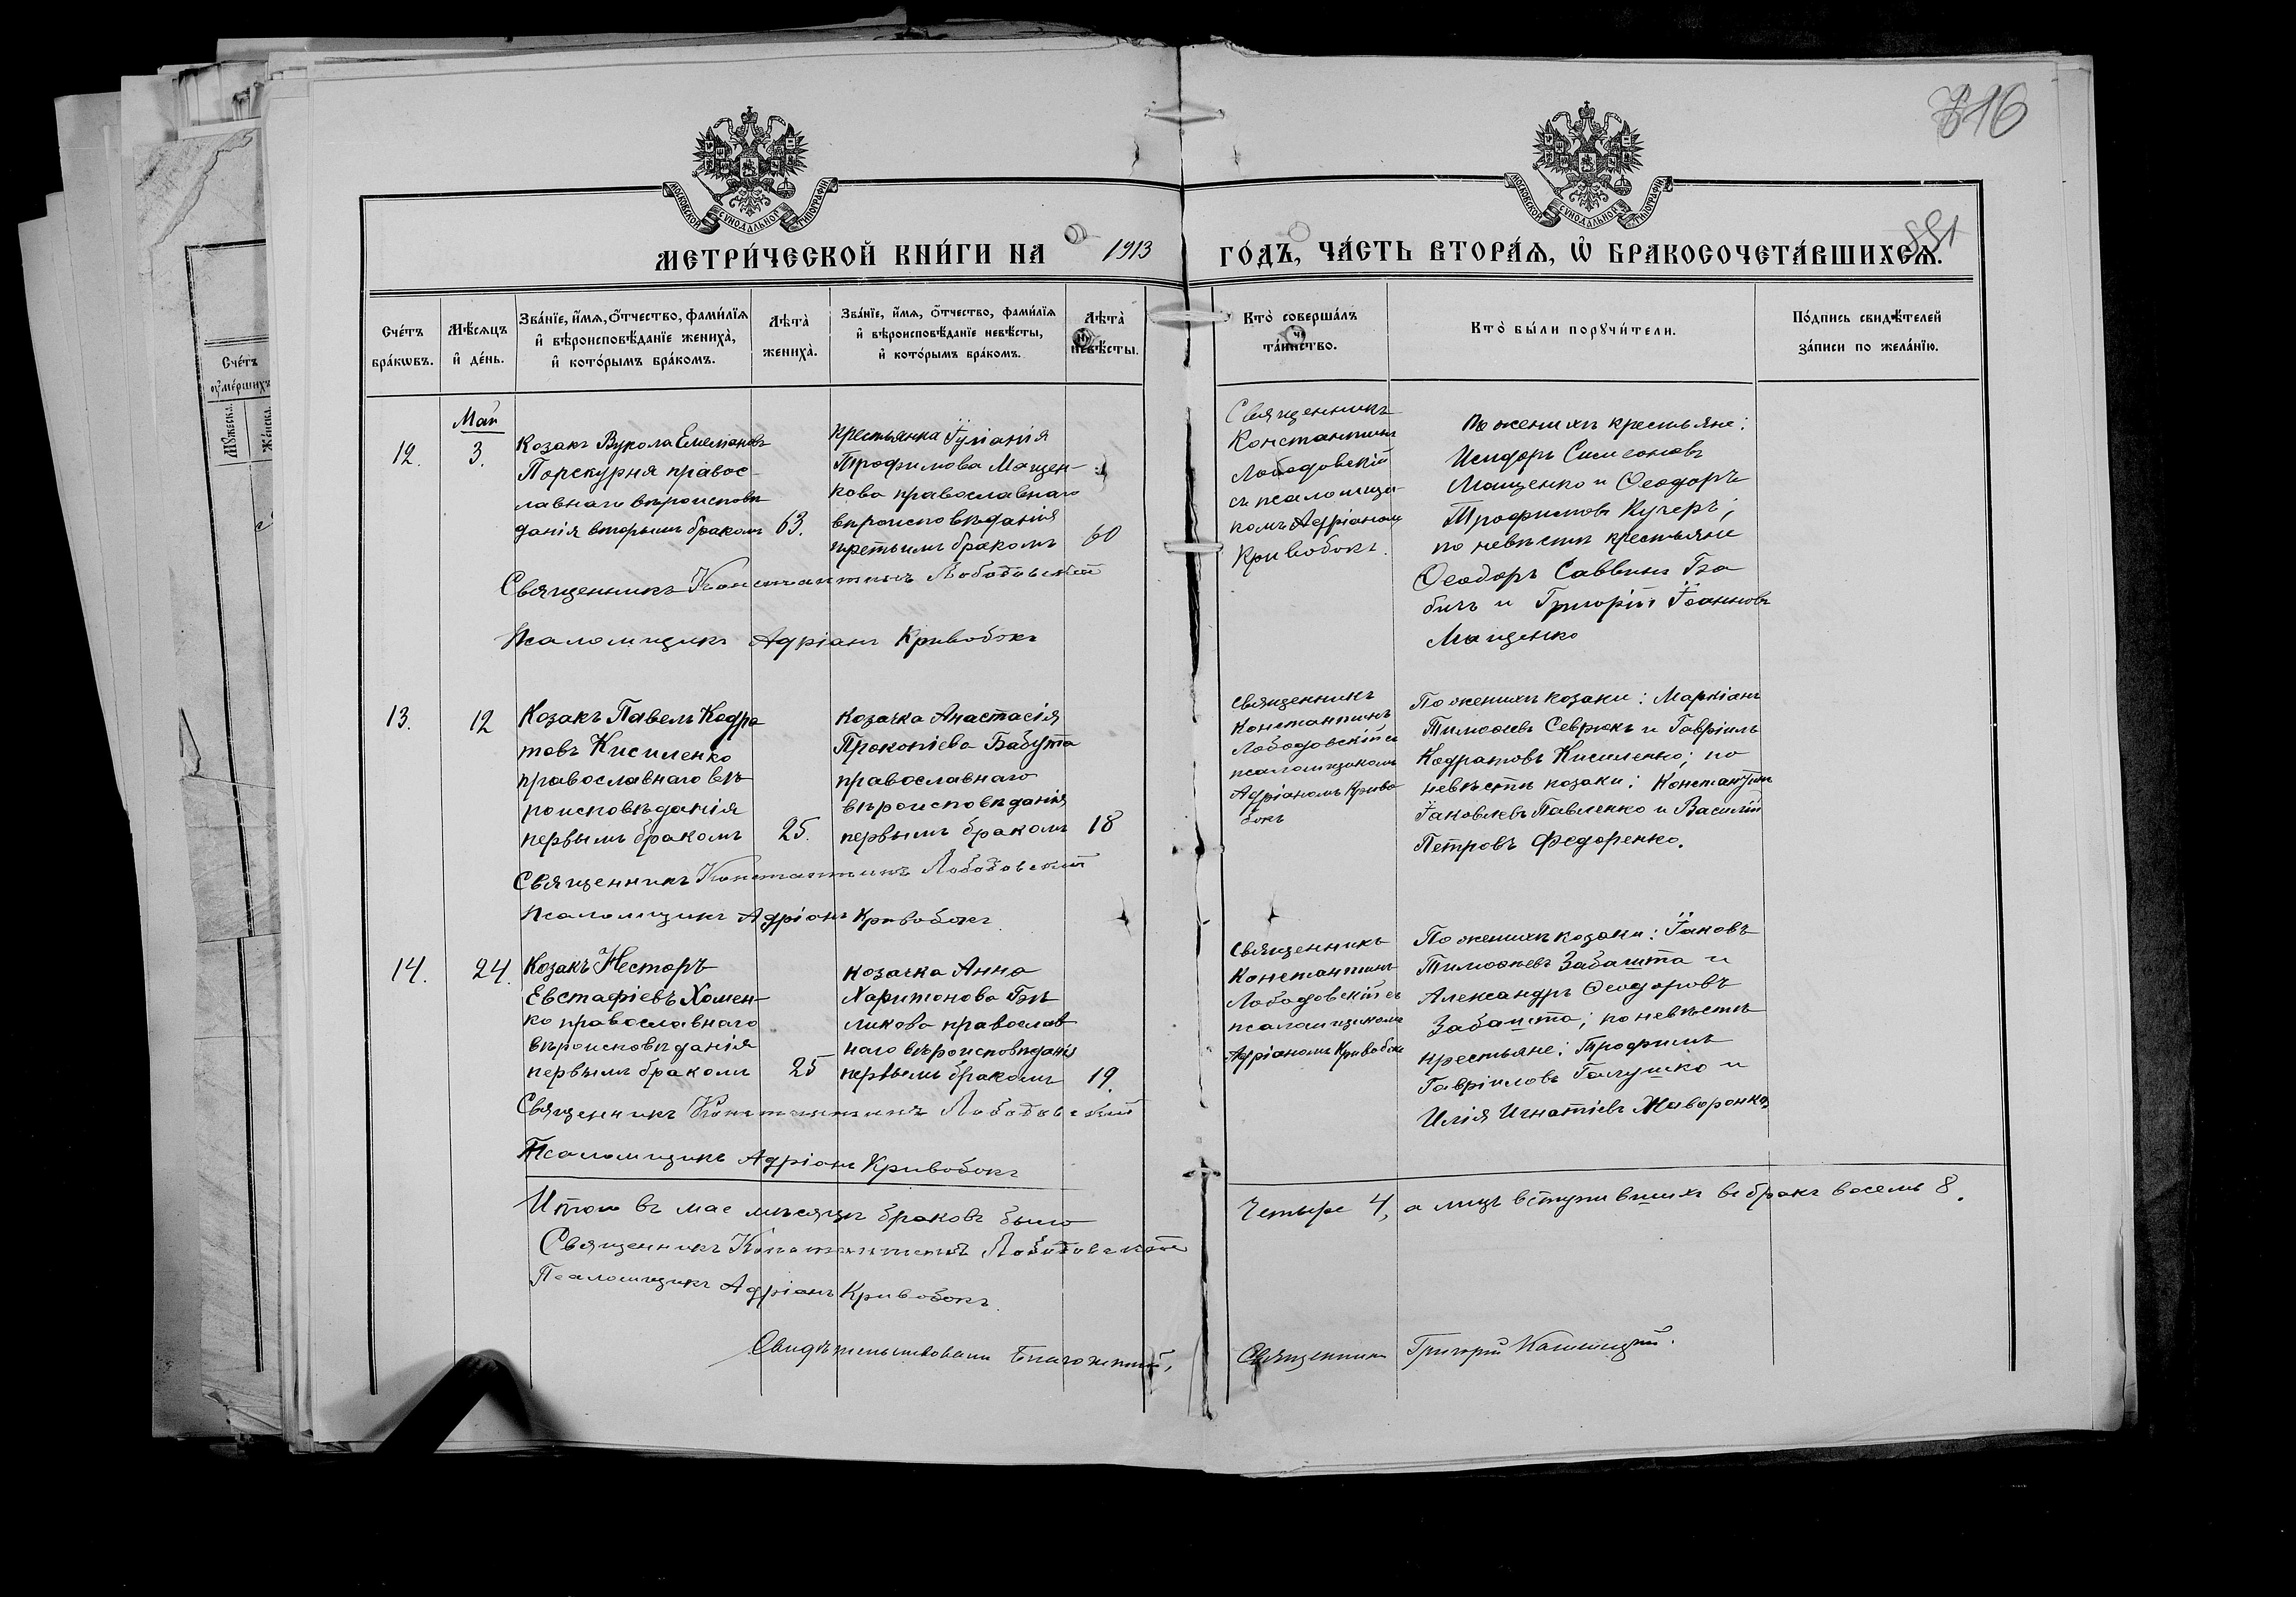 816
551
МОСКОВСКОЙ СѴНОДАЛЬНОЙ ТИПОГРАФІИ
МОСКОВСКОЙ СѴНОДАЛЬНОЙ ТИПОГРАФІИ
МЕТРИ́ЧЕСКОЙ КНИ́ГИ НА 1913 ГО́ДЪ, ЧА́СТЬ ВТОРА́Ѧ, Ѽ БРАКОСОЧЕТА́ВШИХСѦ.
Сче́тъ бра́кѡвъ.
Мѣ́сѧцъ и҆ де́нь.
Зва́нїе, и҆́мѧ, ѻ҆́тчество, фами́лїѧ и҆ вѣроисповѣ́данїе жениха̀, и҆ кото́рымъ бра́комъ.
Лѣта̀ жениха̀.
Зва́нїе, и҆́мѧ, ѻ҆́тчество, фами́лїѧ и҆ вѣроисповѣ́данїе невѣ́сты, и҆ кото́рымъ бра́комъ.
Лѣта̀ невѣ́сты.
Кто̀ соверша́лъ та́инство.
Кто̀ бы́ли порꙋчи́тели.
По́дпись свидѣ́телей за́писи по жела́нїю.
Сче́тъ
ᲂу҆ме́ршихъ
Мꙋ́жеска.
Же́нска.
Май
12.
3.
Козакъ Вукола Емеліановъ
Порскурня правос-
лавнаго вѣроисповѣ
данія вторымъ бракомъ
63.
Крестьянка Їуліанія
Трофимова Мащен-
кова православнаго
вѣроисповѣданія
третьимъ бракомъ
60
Священникъ
Константинъ
Лободовскій
съ псаломщи
комъ Адріаномъ
Кривобокъ.
По женихѣ крестьяне:
Исидоръ Симеоновъ
Мащенко и Ѳеодоръ
Трофимовъ Кучеръ;
по невѣстѣ крестьяне
Ѳеодоръ Саввинъ Ба
бичъ и Григорій Їоанновъ
Мащенко
Священникъ Константинъ Лободовскій
Псаломщикъ Адріанъ Кривобокъ
13.
12
Козакъ Павелъ Кодра
товъ Кисиленко
православнаго вѣ
роисповѣданія
первымъ бракомъ
25.
Козачка Анастасія
Прокопіева Бабута
православнаго
вѣроисповѣданія
первымъ бракомъ
18
Священникъ
Константинъ
Лободовскій съ
псаломщикомъ
Адріаномъ Криво
бокъ
По женихѣ козаки: Маркіанъ
Тимоѳеевъ Севрюкъ и Гавріилъ
Кодратовъ Кисиленко; по
невѣстѣ козаки: Константинъ
Їаковлевъ Павленко и Василій
Петровъ Федоренко.
Священникъ Константинъ Лободовскій
Псаломщикъ Адріанъ Кривобокъ.
14.
24.
Козакъ Несторъ
Евстафіевъ Хомен-
ко православнаго
вѣроисповѣданія
первымъ бракомъ
25
козачка Анна
Харитонова Бѣ
ликова православ
наго вѣроисповѣданія
первымъ бракомъ
19.
Священникъ
Константинъ
Лободовскій съ
псаломщикомъ
Адріаномъ Кривобокъ
По женихѣ козаки: Їаковъ
Тимоѳеевъ Забашта и
Александръ Ѳеодоровъ
Забашта; по невѣстѣ
крестьяне: Трофимъ
Гавріиловъ Галушко и
Илія Игнатіевъ Жаворонко
Священникъ Константинъ Лободовскій
Псаломщикъ Адріанъ Кривобокъ
Итого въ мае мѣсяцѣ браковъ было Четыре 4, а лицъ вступившихъ въ бракъ восемь 8.
Священникъ Константинъ Лободовскій
Псаломщикъ Адріанъ Кривобокъ.
Свидѣтельствовали Благочинный, Священникъ Григорій